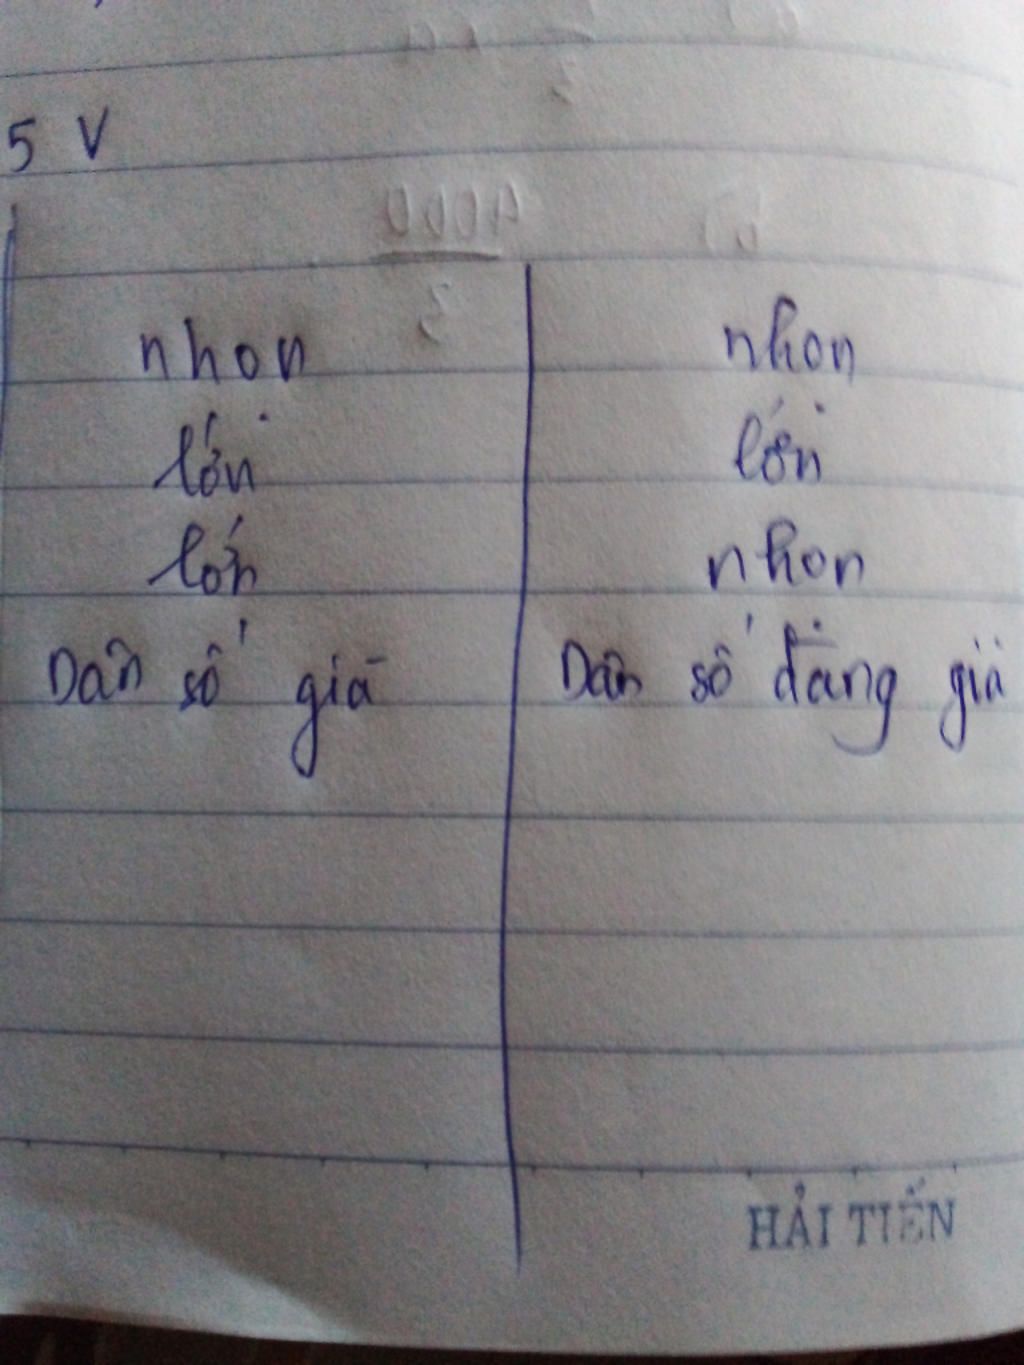 5 V
nhọn nhọn
lớn lớn
lớn nhọn
Dân số già Dân số đang già
HẢI TIẾN